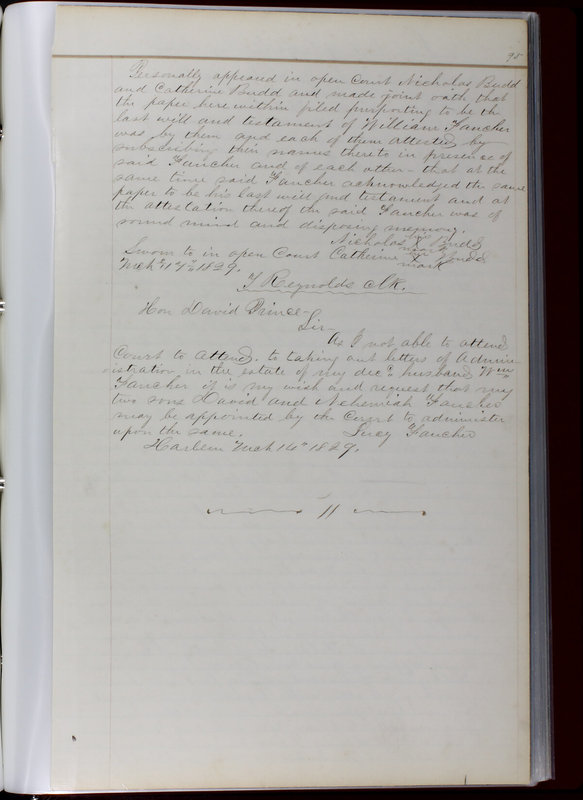 95
Personally appeared in open Court Nicholas Budd
and Catherine Budd and made joint oath that
the paper here within filed purporting to be the
last will and testament of William Fancher
was by them and each of them attested by
subscribing their names thereto in presence of
said Fancher and of each other - that at the
same time said Fancher acknowledged the same
paper to be his last will and testament and at
the attestation thereof the said Fancher was of
sound mind and disposing memory.
Nicholas his X mark Budd
Sworn to in open Court Catherine her X mark Budd
Mch 17th 1829.
T Reynolds clk.
Hon David Prince -
Sir -
As I not able to attend
Court to attend. to taking out letters of Admin-
istration, in the estate of my decd husband Wm
Fancher it is my wish and request that my
two sons David and Nehemiah Fancher
may be appointed by the Court to administer
upon the same. Lucy Fancher
Harlem Mch 14th 1829.
11